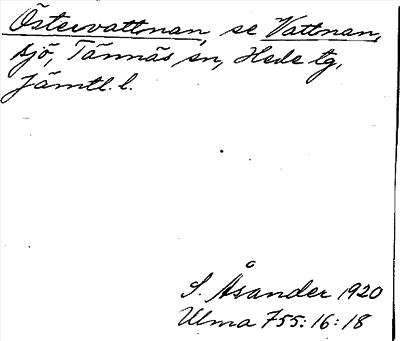 Östervattnan, se Vattnan,
sjö, Tännäs sn, Hede tg,
Jämtl. l.
S. Åsander 1920
Ulma 755:16:18